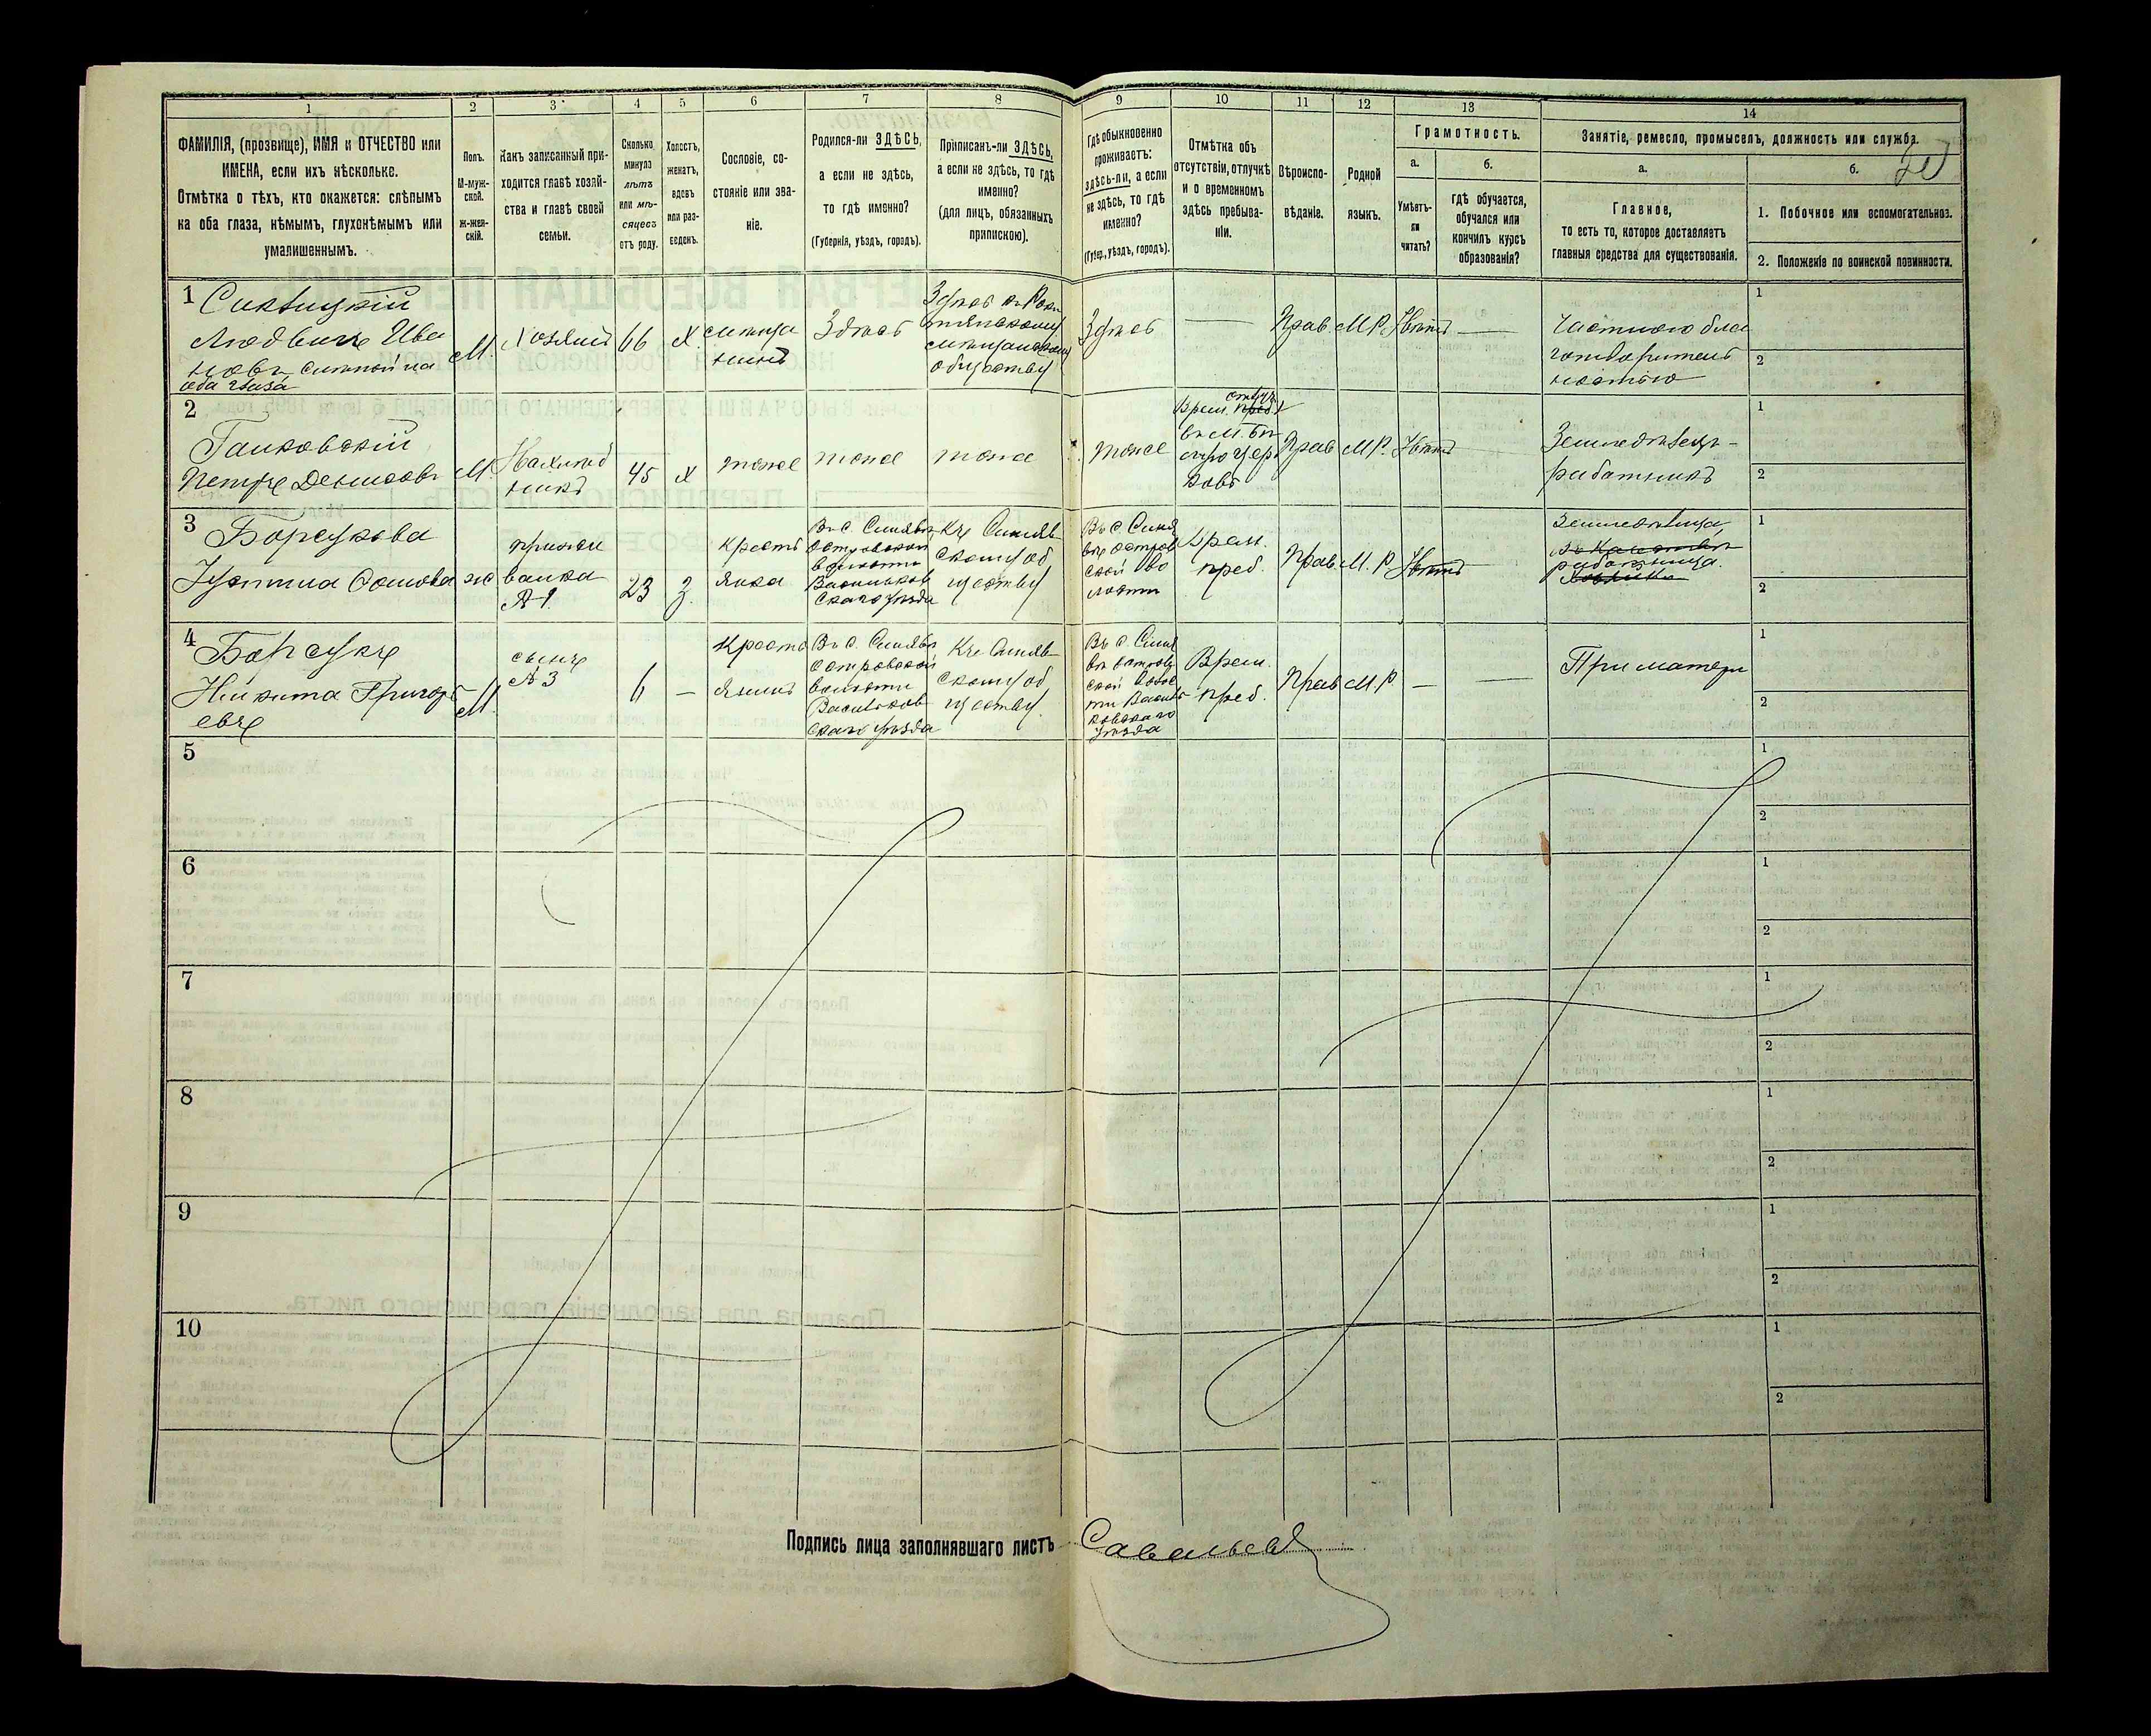 1 2 3 4 5 6 7 8 9 10 11 12 13 14
ФАМИЛІЯ, (прозвище), ИМЯ и ОТЧЕСТВО или
ИМЕНА, если ихъ нѣсколько.
Отмѣтка о тѣхъ, кто окажется: слѣпымъ
на оба глаза, нѣмымъ, глухонѣмымъ или
умалишеннымъ.
Полъ.
М-муж-
ской.
Ж-жен-
скій.
Какъ записанный при-
ходится главѣ хозяй-
ства и главѣ своей
семьи.
Сколько
минуло
лѣтъ
или мѣ-
сяцевъ
отъ роду.
Холостъ,
женатъ,
вдовъ
или раз-
веденъ.
Сословіе, со-
стояніе или зва-
ніе.
Родился-ли ЗДѢСЬ,
а если не здѣсь,
то гдѣ именно?
(Губернія, уѣздъ, городъ).
Приписанъ-ли ЗДѢСЬ,
а если не здѣсь, то гдѣ
именно?
(для лицъ, обязанныхъ
припискою).
Гдѣ обыкновенно
проживаетъ:
здѣсь-ли, а если
не здѣсь, то гдѣ
именно?
(Губер., уѣздъ, городъ).
Отмѣтка объ
отсутствіи, отлучкѣ
и о временномъ
здѣсь пребыва-
ніи.
Вѣроиспо-
вѣданіе.
Родной
языкъ.
Грамотность.
а.
Умѣетъ-
ли
читать?
б.
гдѣ обучается,
обучался или
кончилъ курсъ
образованія?
Занятіе, ремесло, промыселъ, должность или служба.
а.
Главное,
то есть то, которое доставляетъ
главныя средства для существованія.
б.
1. Побочное или вспомогательное.
2. Положеніе по воинской повинности.
1
Людвигъ Ива
новъ слѣпой на
оба глаза
М.
Хозяинъ
66
Х
мѣща
нинъ
Здѣсь
мѣщанскому
обществу
Здѣсь
—
Прав.
М.Р.
Нѣтъ
—
Частною бла
готворитель
ностію
1
2
2
Ганковскій
Петръ Денисовъ
М.
45
Х
тоже
тоже
тоже
тоже
Врем.
Прав
М.Р.
Нѣтъ
Земледѣлецъ-
работникъ
1
2
3
Борсукова
Ж
23
З.
Кресть
янка
Въ С. Синявѣ
Островской
волости
Васильков
скаго уѣзда
Къ Синяв
скому об
ществу
Въ С Синя
вѣ Остров
ской во
лости
Врем.
преб.
Прав
М.Р
Нѣтъ
работница.
1
2
4
Борсукъ
Никита Григорь
евъ
М.
сынъ
№ 3
6
—
Кресть
янинъ
Въ С. Синявѣ
Островской
волости
Васильков
скаго уѣзда
Къ Синяв
скому об
ществу
Въ С. Синя
вѣ Остров
ской волос
ти Василь
ковскаго
уѣзда
Врем.
преб.
Прав
М.Р.
—
—
При матери
1
2
5
1
2
6
1
2
7
1
2
8
1
2
9
1
2
10
1
2
Подпись лица заполнявшаго листъ